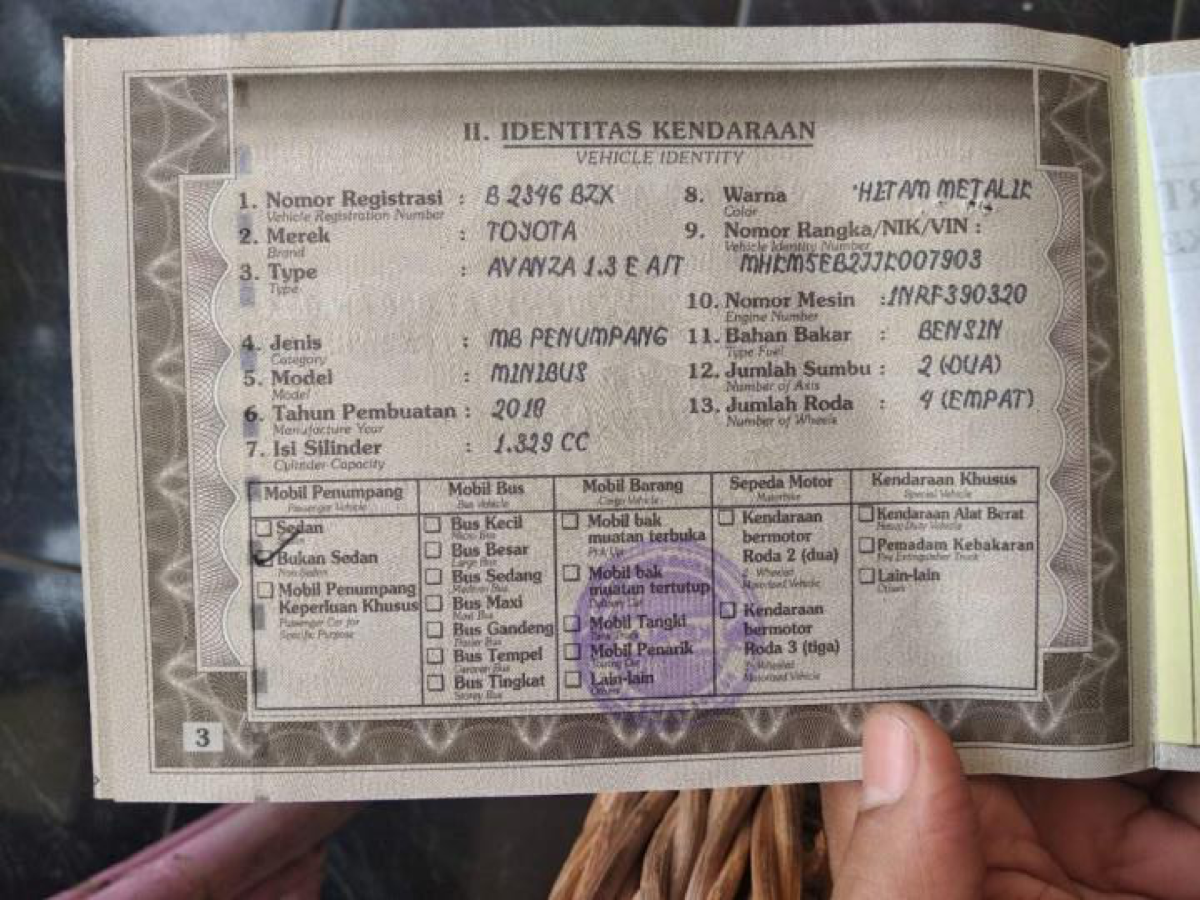 II. IDENTITAS KENDARAAN
VEHICLE IDENTITY
1. Nomor Registrasi : B 2346 BZX
Vehicle Registration Number
2. Merek : TOYOTA
Brand
3. Type : AVANZA 1.3 E A/T
Type
4. Jenis : MB PENUMPANG
Category
5. Model : MINIBUS
Model
6. Tahun Pembuatan : 2018
Manufacture Year
7. Isi Silinder : 1.329 CC
Cylinder Capacity
8. Warna HITAM METALIK
Color
9. Nomor Rangka/NIK/VIN :
Vehicle Identity Number
MHKM5EB2JJK007903
10. Nomor Mesin : 1NRF390320
Engine Number
11. Bahan Bakar : BENSIN
Type Fuel
12. Jumlah Sumbu : 2 (DUA)
Number of Axis
13. Jumlah Roda : 4 (EMPAT)
Number of Wheels
Mobil Penumpang
Passenger Vehicle
Sedan
Bukan Sedan
Non Sedan
Mobil Penumpang
Keperluan Khusus
Passenger Car for
Specific Purpose
Mobil Bus
Bus Vehicle
Bus Kecil
Micro Bus
Bus Besar
Large Bus
Bus Sedang
Medium Bus
Bus Maxi
Maxi Bus
Bus Gandeng
Bus Tempel
Bus Tingkat
Storey Bus
Mobil Barang
Cargo Vehicle
Mobil bak
muatan terbuka
Pick Up
Mobil bak
muatan tertutup
Delivery Car
Mobil Tangki
Tank Truck
Mobil Penarik
Towing Car
Lain-lain
Others
Sepeda Motor
Motorbike
Kendaraan
bermotor
Roda 2 (dua)
2 Wheeled
Motorised Vehicle
Kendaraan
bermotor
Roda 3 (tiga)
3 Wheeled
Motorised Vehicle
Kendaraan Khusus
Special Vehicle
Kendaraan Alat Berat
Heavy Duty Vehicle
Pemadam Kebakaran
Fire Extinguisher Truck
Lain-lain
Others
3